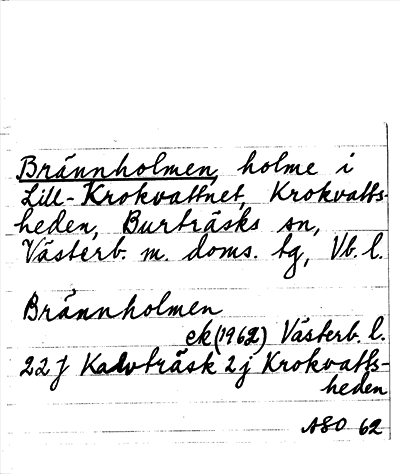 Brännholmen, holme i
Lill-Krokvattnet, Krokvatts-
heden, Burträsks sn,
Västerb. m. doms. tg, Vb. l.
Brännholmen
ek (1962) Västerb. l.
22 J Kalvträsk 2 j Krokvatts-
heden
ASO 62